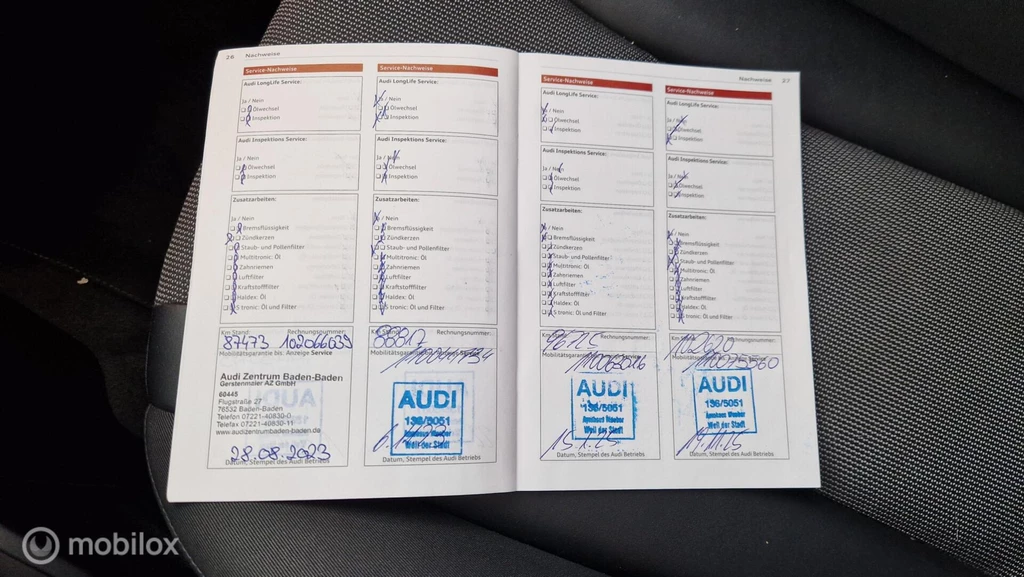 26 Nachweise
Service-Nachweise
Audi LongLife Service:
Ja / Nein
Ölwechsel
Inspektion
Audi Inspektions Service:
Ja / Nein
Ölwechsel
Inspektion
Zusatzarbeiten:
Ja / Nein
Bremsflüssigkeit
Zündkerzen
Staub- und Pollenfilter
Multitronic: Öl
Zahnriemen
Luftfilter
Kraftstofffilter
Haldex: Öl
S tronic: Öl und Filter
Km Stand: Rechnungsnummer:
87473 102066039
Mobilitätsgarantie bis: Anzeige Service
Audi Zentrum Baden-Baden
Gerstenmaier AZ GmbH
60445
Flugstraße 27
76532 Baden-Baden
Telefon 07221-40830-0
Telefax 07221-40830-11
www.audizentrumbaden-baden.de
28.08.2023
Datum, Stempel des Audi Betriebs
Service-Nachweise
Audi LongLife Service:
Ja / Nein
Ölwechsel
Inspektion
Audi Inspektions Service:
Ja / Nein
Ölwechsel
Inspektion
Zusatzarbeiten:
Ja / Nein
Bremsflüssigkeit
Zündkerzen
Staub- und Pollenfilter
Multitronic: Öl
Zahnriemen
Luftfilter
Kraftstofffilter
Haldex: Öl
S tronic: Öl und Filter
Km Stand: Rechnungsnummer:
Mobilitätsgarantie
AUDI
136/5051
Weil der Stadt
Datum, Stempel des Audi Betriebs
Nachweise 27
Service-Nachweise
Audi LongLife Service:
Ja / Nein
Ölwechsel
Inspektion
Audi Inspektions Service:
Ja / Nein
Ölwechsel
Inspektion
Zusatzarbeiten:
Ja / Nein
Bremsflüssigkeit
Zündkerzen
Staub- und Pollenfilter
Multitronic: Öl
Zahnriemen
Luftfilter
Kraftstofffilter
Haldex: Öl
S tronic: Öl und Filter
Km Stand: Rechnungsnummer:
Mobilitätsgarantie
AUDI
136/5051
Weil der Stadt
Datum, Stempel des Audi Betriebs
Service-Nachweise
Audi LongLife Service:
Ja / Nein
Ölwechsel
Inspektion
Audi Inspektions Service:
Ja / Nein
Ölwechsel
Inspektion
Zusatzarbeiten:
Ja / Nein
Bremsflüssigkeit
Zündkerzen
Staub- und Pollenfilter
Multitronic: Öl
Zahnriemen
Luftfilter
Kraftstofffilter
Haldex: Öl
S tronic: Öl und Filter
Km Stand: Rechnungsnummer:
102620
Mobilitätsgarantie
110075060
AUDI
136/5051
Weil der Stadt
Datum, Stempel des Audi Betriebs
mobilox